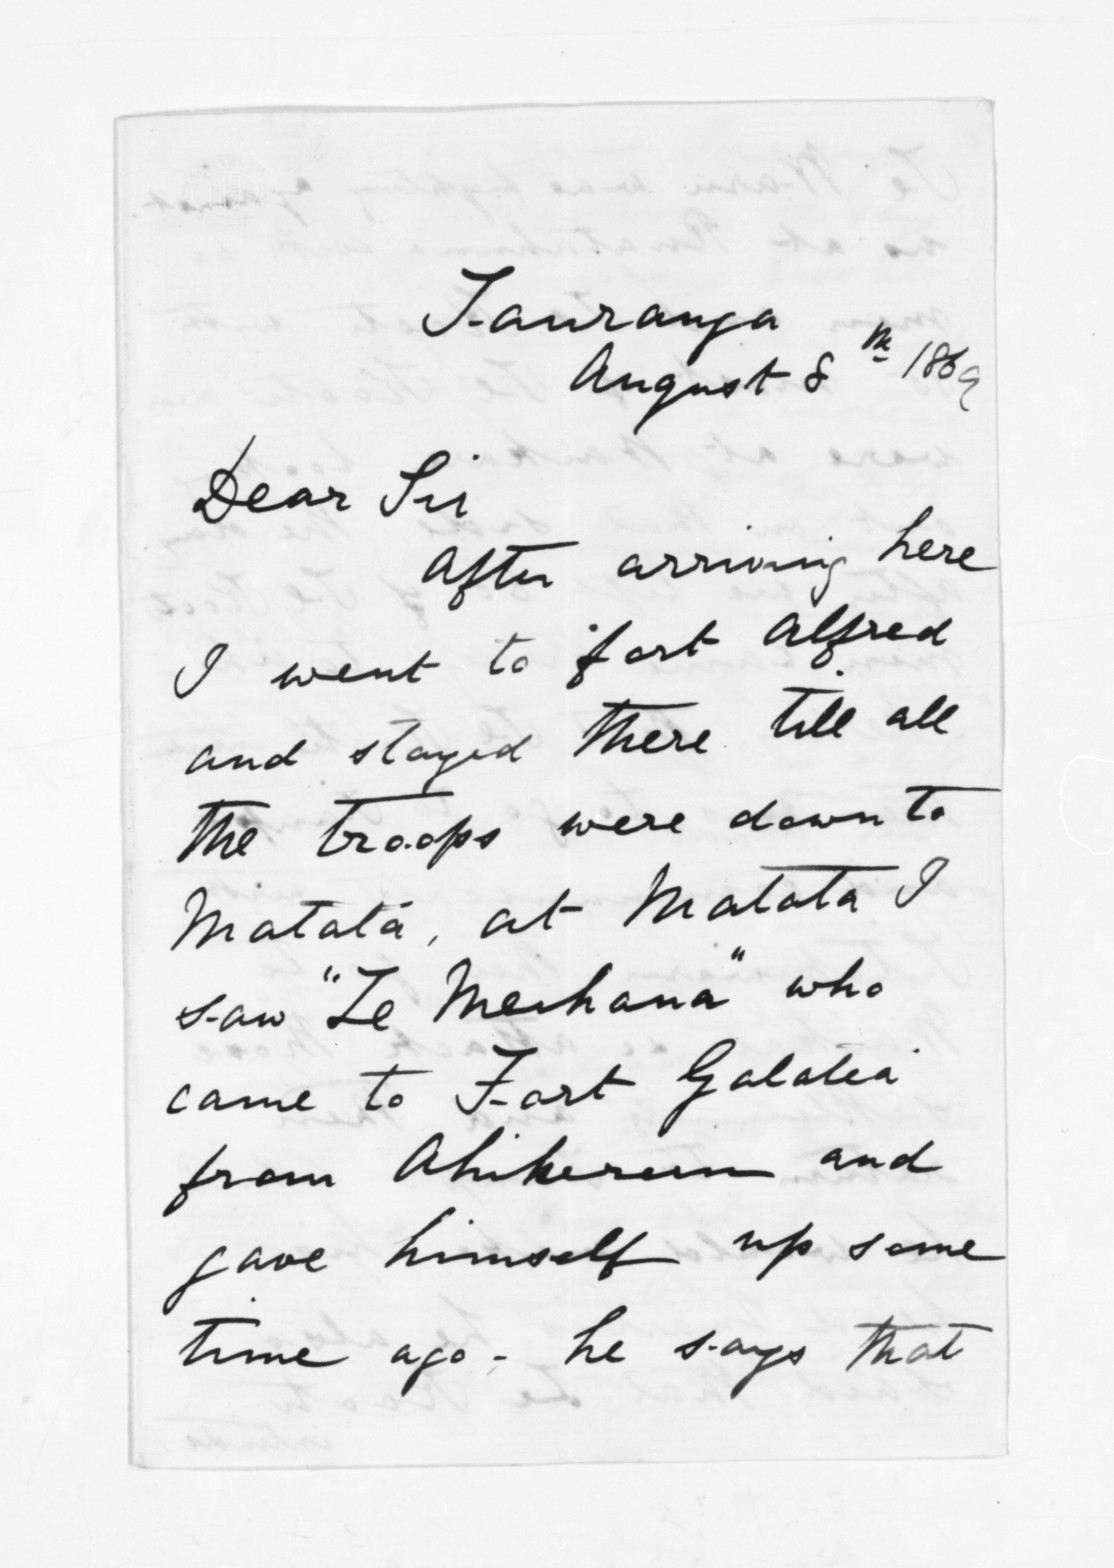 Tauranga
August 8th 1869
Dear Sir
After arriving here
I went to fort Alfred
and stayed there till all
the troops were down to
Matata, at Matata I
saw "Te Meihana" who
came to Fort Galatea
from Ahikereru and
gave himself up some
time ago - he says that